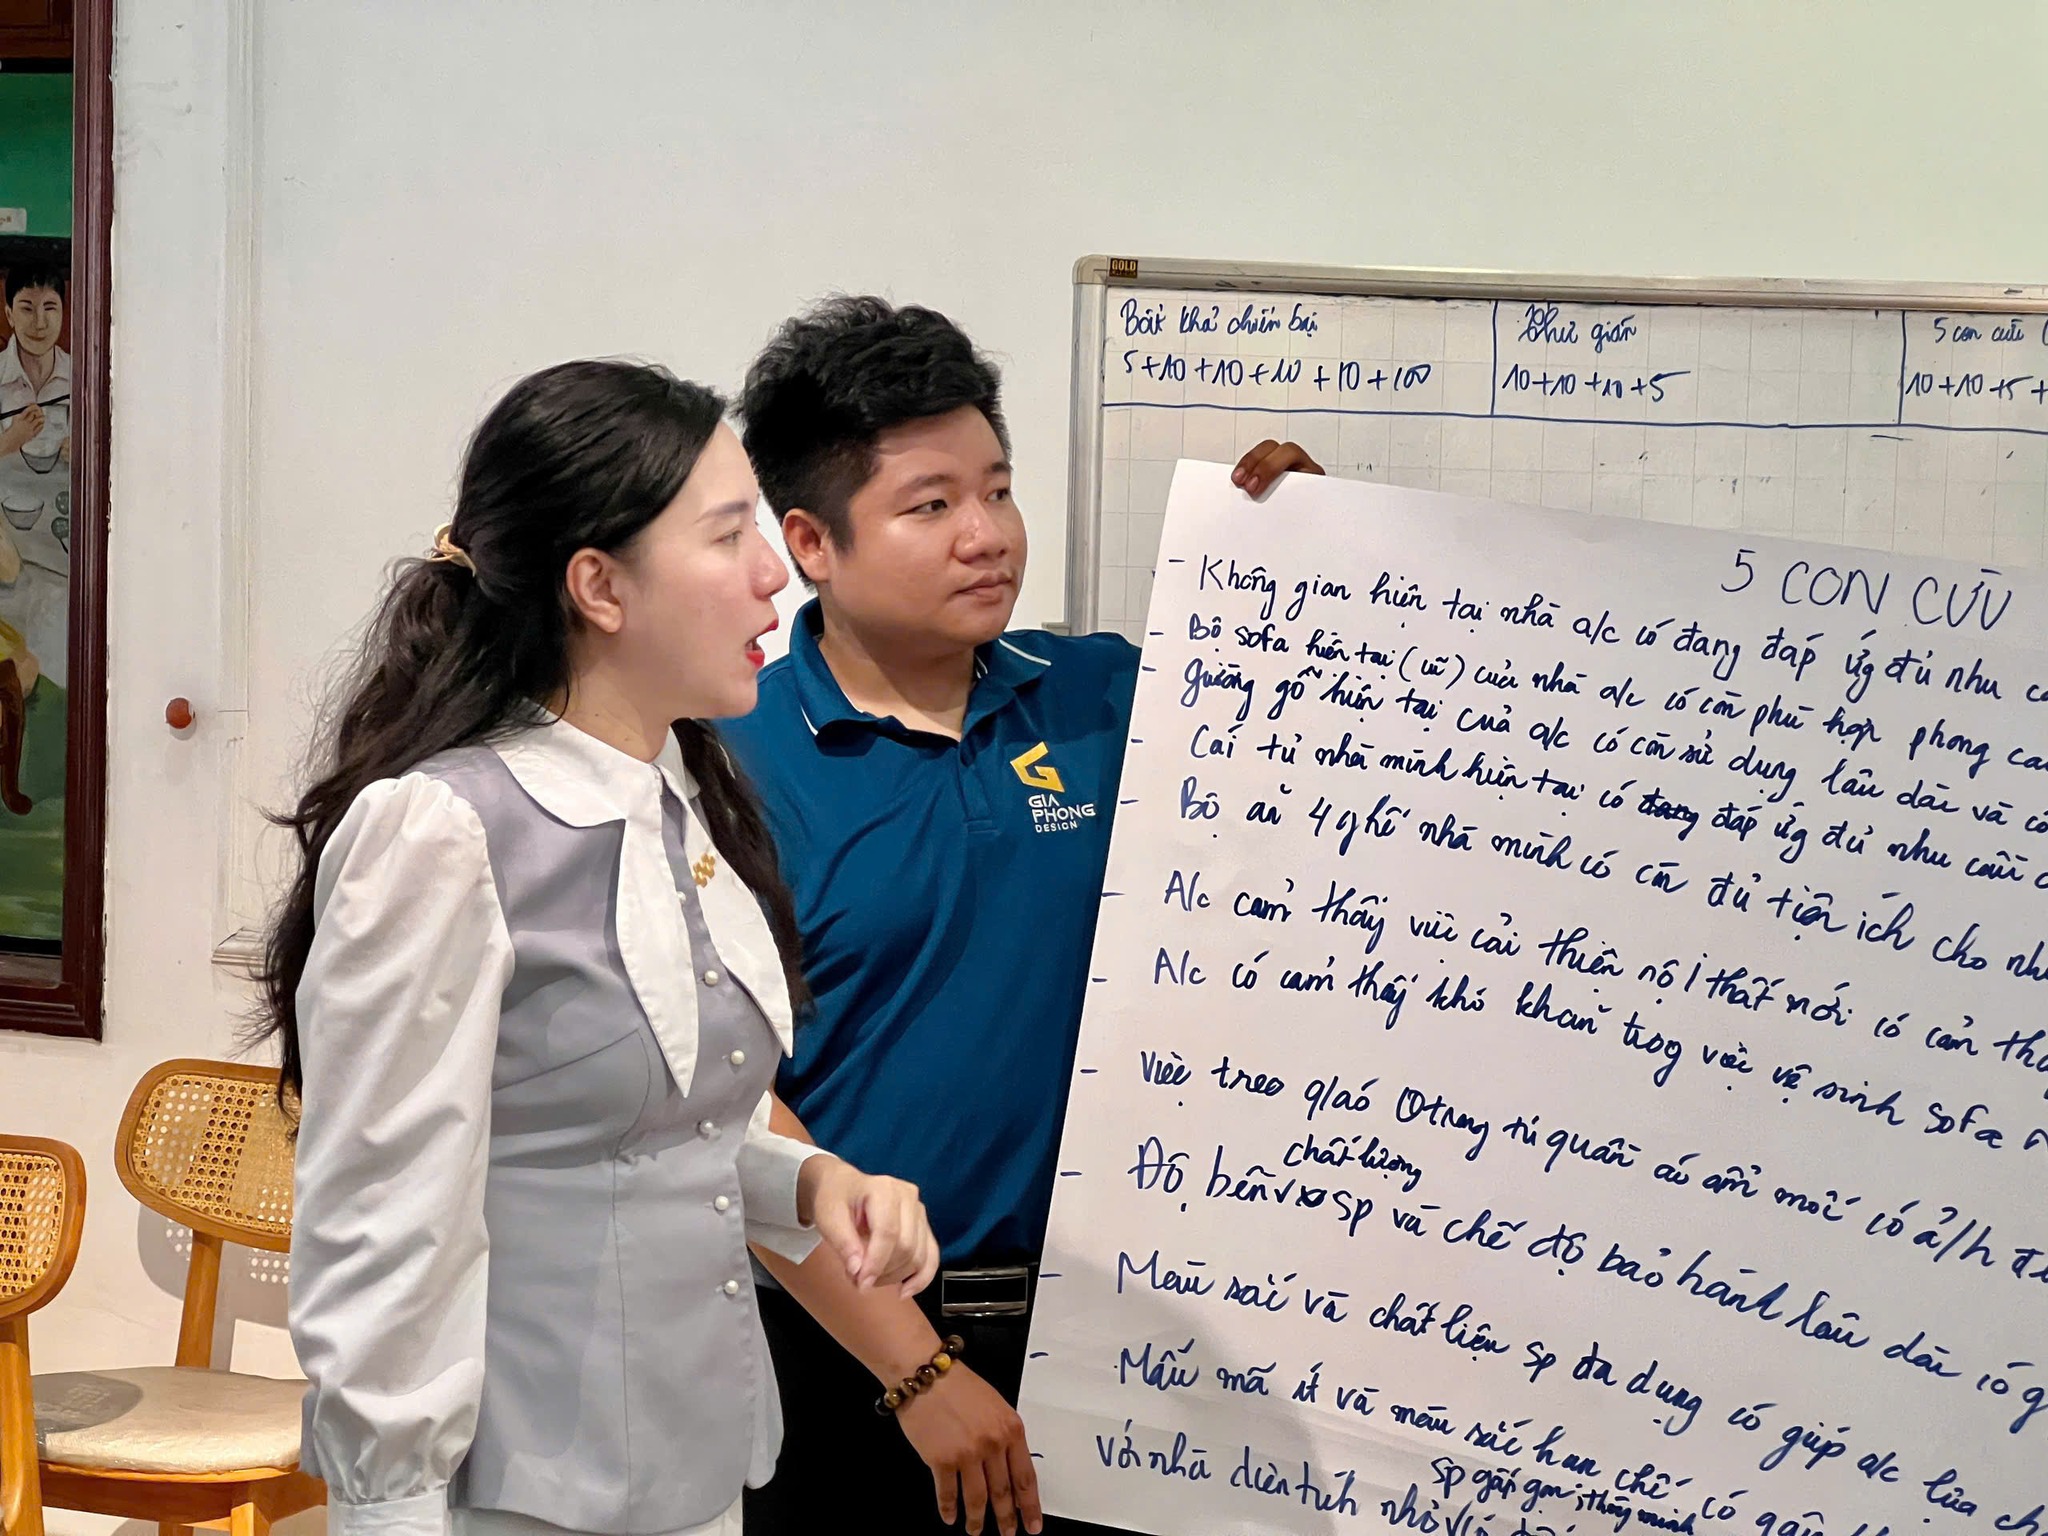 GOLD
Bất khả chiến bại
5+10+10+10+10+100
Thư giãn
10+10+10+5
5 con cừu (
10+10+5+
5 CON CỪU
- Không gian hiện tại nhà a/c có đang đáp ứg đủ nhu
- Bộ sofa hiện tại (cũ) của nhà a/c có còn phù hợp phong
- Giường gỗ hiện tại của a/c có còn sử dụng lâu dài và có
- Cái tủ nhà mình hiện tại có đang đáp ứg đủ nhu cầu
- Bộ ăn 4 ghế nhà mình có còn đủ tiện ích cho
- A/c cảm thấy việc cải thiện nội thất mới có cảm
- A/c có cảm thấy khó khăn trog việc vệ sinh sofa
- Việc treo q/áo trong tủ quần áo ẩm mốc có ả/h
chất lượng
- Độ bền sp và chế độ bảo hành lâu dài có
- Màu sắc và chất liệu sp đa dụng có giúp a/c lựa
- Mẫu mã ít và màu sắc hạn chế có
- Với nhà diện tích nhỏ
sp gấp gọn, thông minh
GIA
PHONG
DESIGN